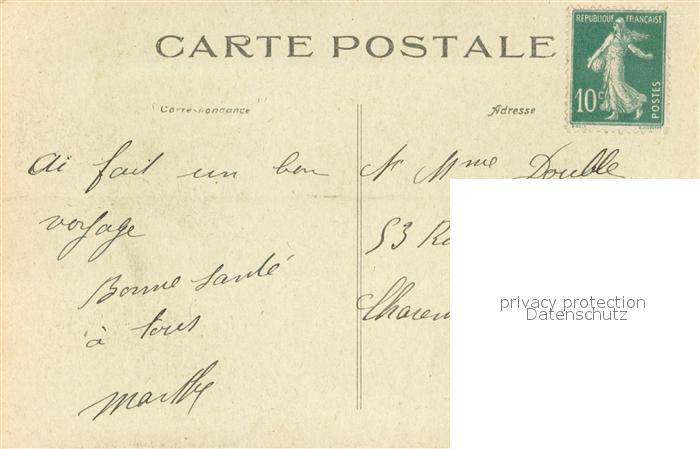 CARTE POSTALE
REPUBLIQUE FRANÇAISE
10c
POSTES
Correspondance
Adresse
ai fait un bon
voyage
Bonne santé
à tous
Marthe
M Mme Double
53 R
Charen
privacy protection
Datenschutz